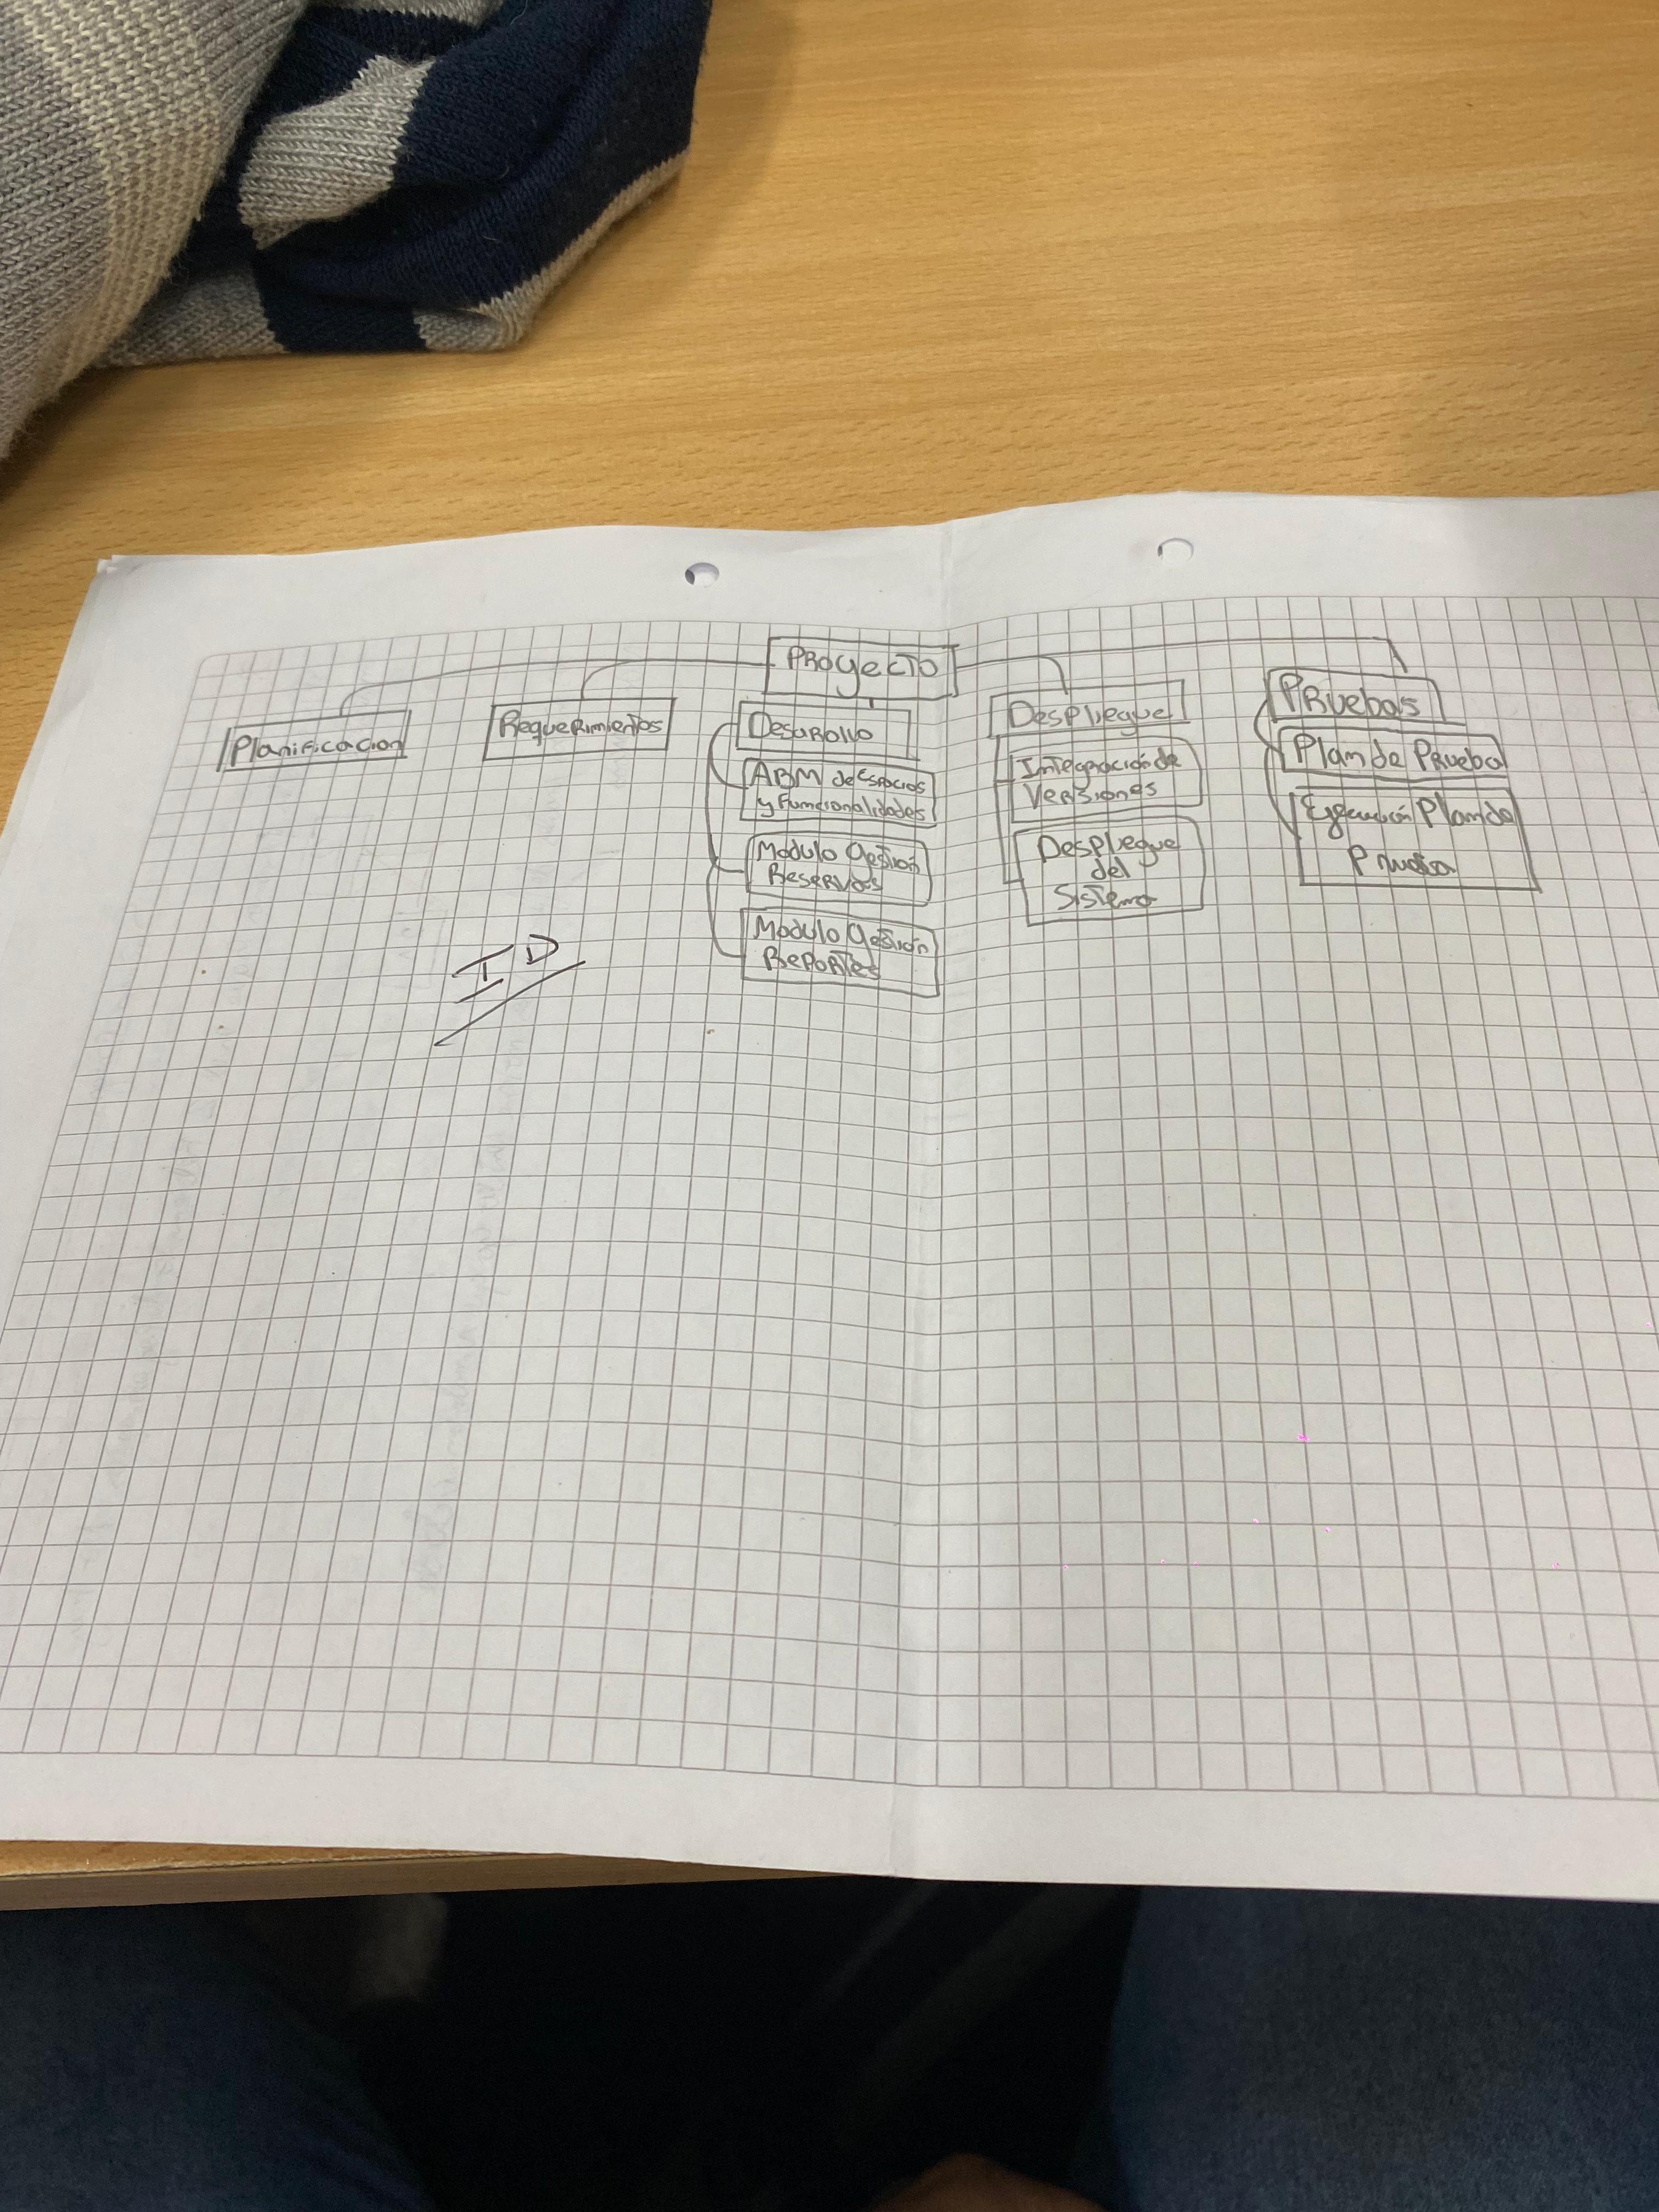 Proyecto
Planificacion
Requerimientos
Desarollo
ABM de Espacios
y Funcionalidades
Modulo Gestión
Reservas
Modulo Gestión
Reportes
Despliegue
Integración de
Versiones
Despliegue
del
Sistema
Pruebas
Plan de Prueba
Ejecución Plan de
Prueba
ID